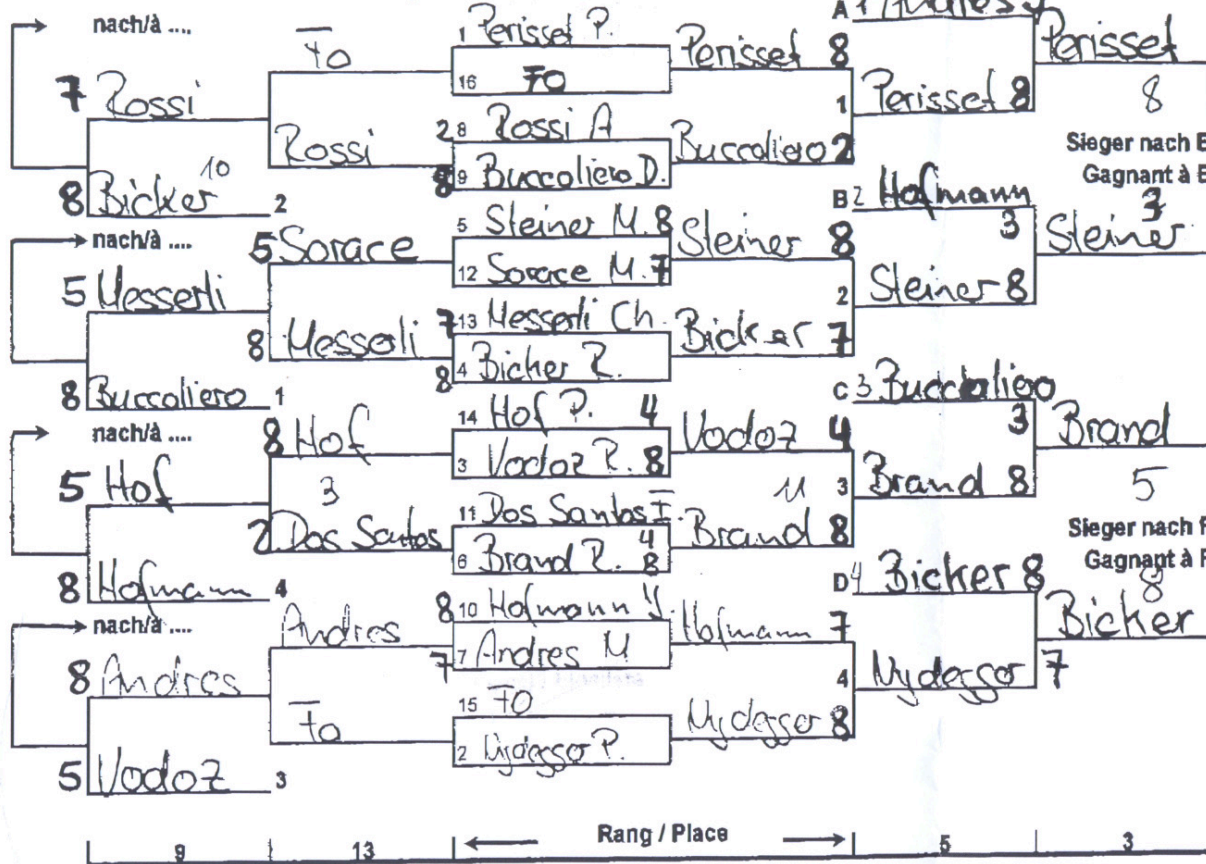 nach/à ....
7 Rossi
8 Bicker 10
2
nach/à ....
5 Messerli
8 Buccoliero
1
nach/à ....
5 Hof
8 Hofmann
4
nach/à ....
8 Andres
5 Vodoz
3
Fo
Rossi
5 Sorace
8 Messerli
8 Hof
3
2 Dos Santos
Andres
Fo
1 Perisset P.
16 Fo
2 8 Rossi A
8 9 Buccoliero D.
5 Steiner M. 8
12 Sorace M. 7
7 13 Messerli Ch.
8 4 Bicker R.
14 Hof P. 4
3 Vodoz R. 8
11 Dos Santos I. 4
6 Brand R. 8
8 10 Hofmann
7 7 Andres M
15 Fo
2 Nydegger P.
Perisset 8
1
Buccoliero 2
Steiner 8
2
Bicker 7
Vodoz 4
11 3
Brand 8
Hofmann 7
4
Nydegger 8
A 1 Andres
Perisset 8
B 2 Hofmann
3
Steiner 8
C 3 Buccoliero
3
Brand 8
D 4 Bicker 8
Nydegger 7
Perisset
8
Sieger nach E
Gagnant à E
Steiner
Brand
5
Sieger nach F
Gagnant à F
8
Bicker
9
13
Rang / Place
5
3